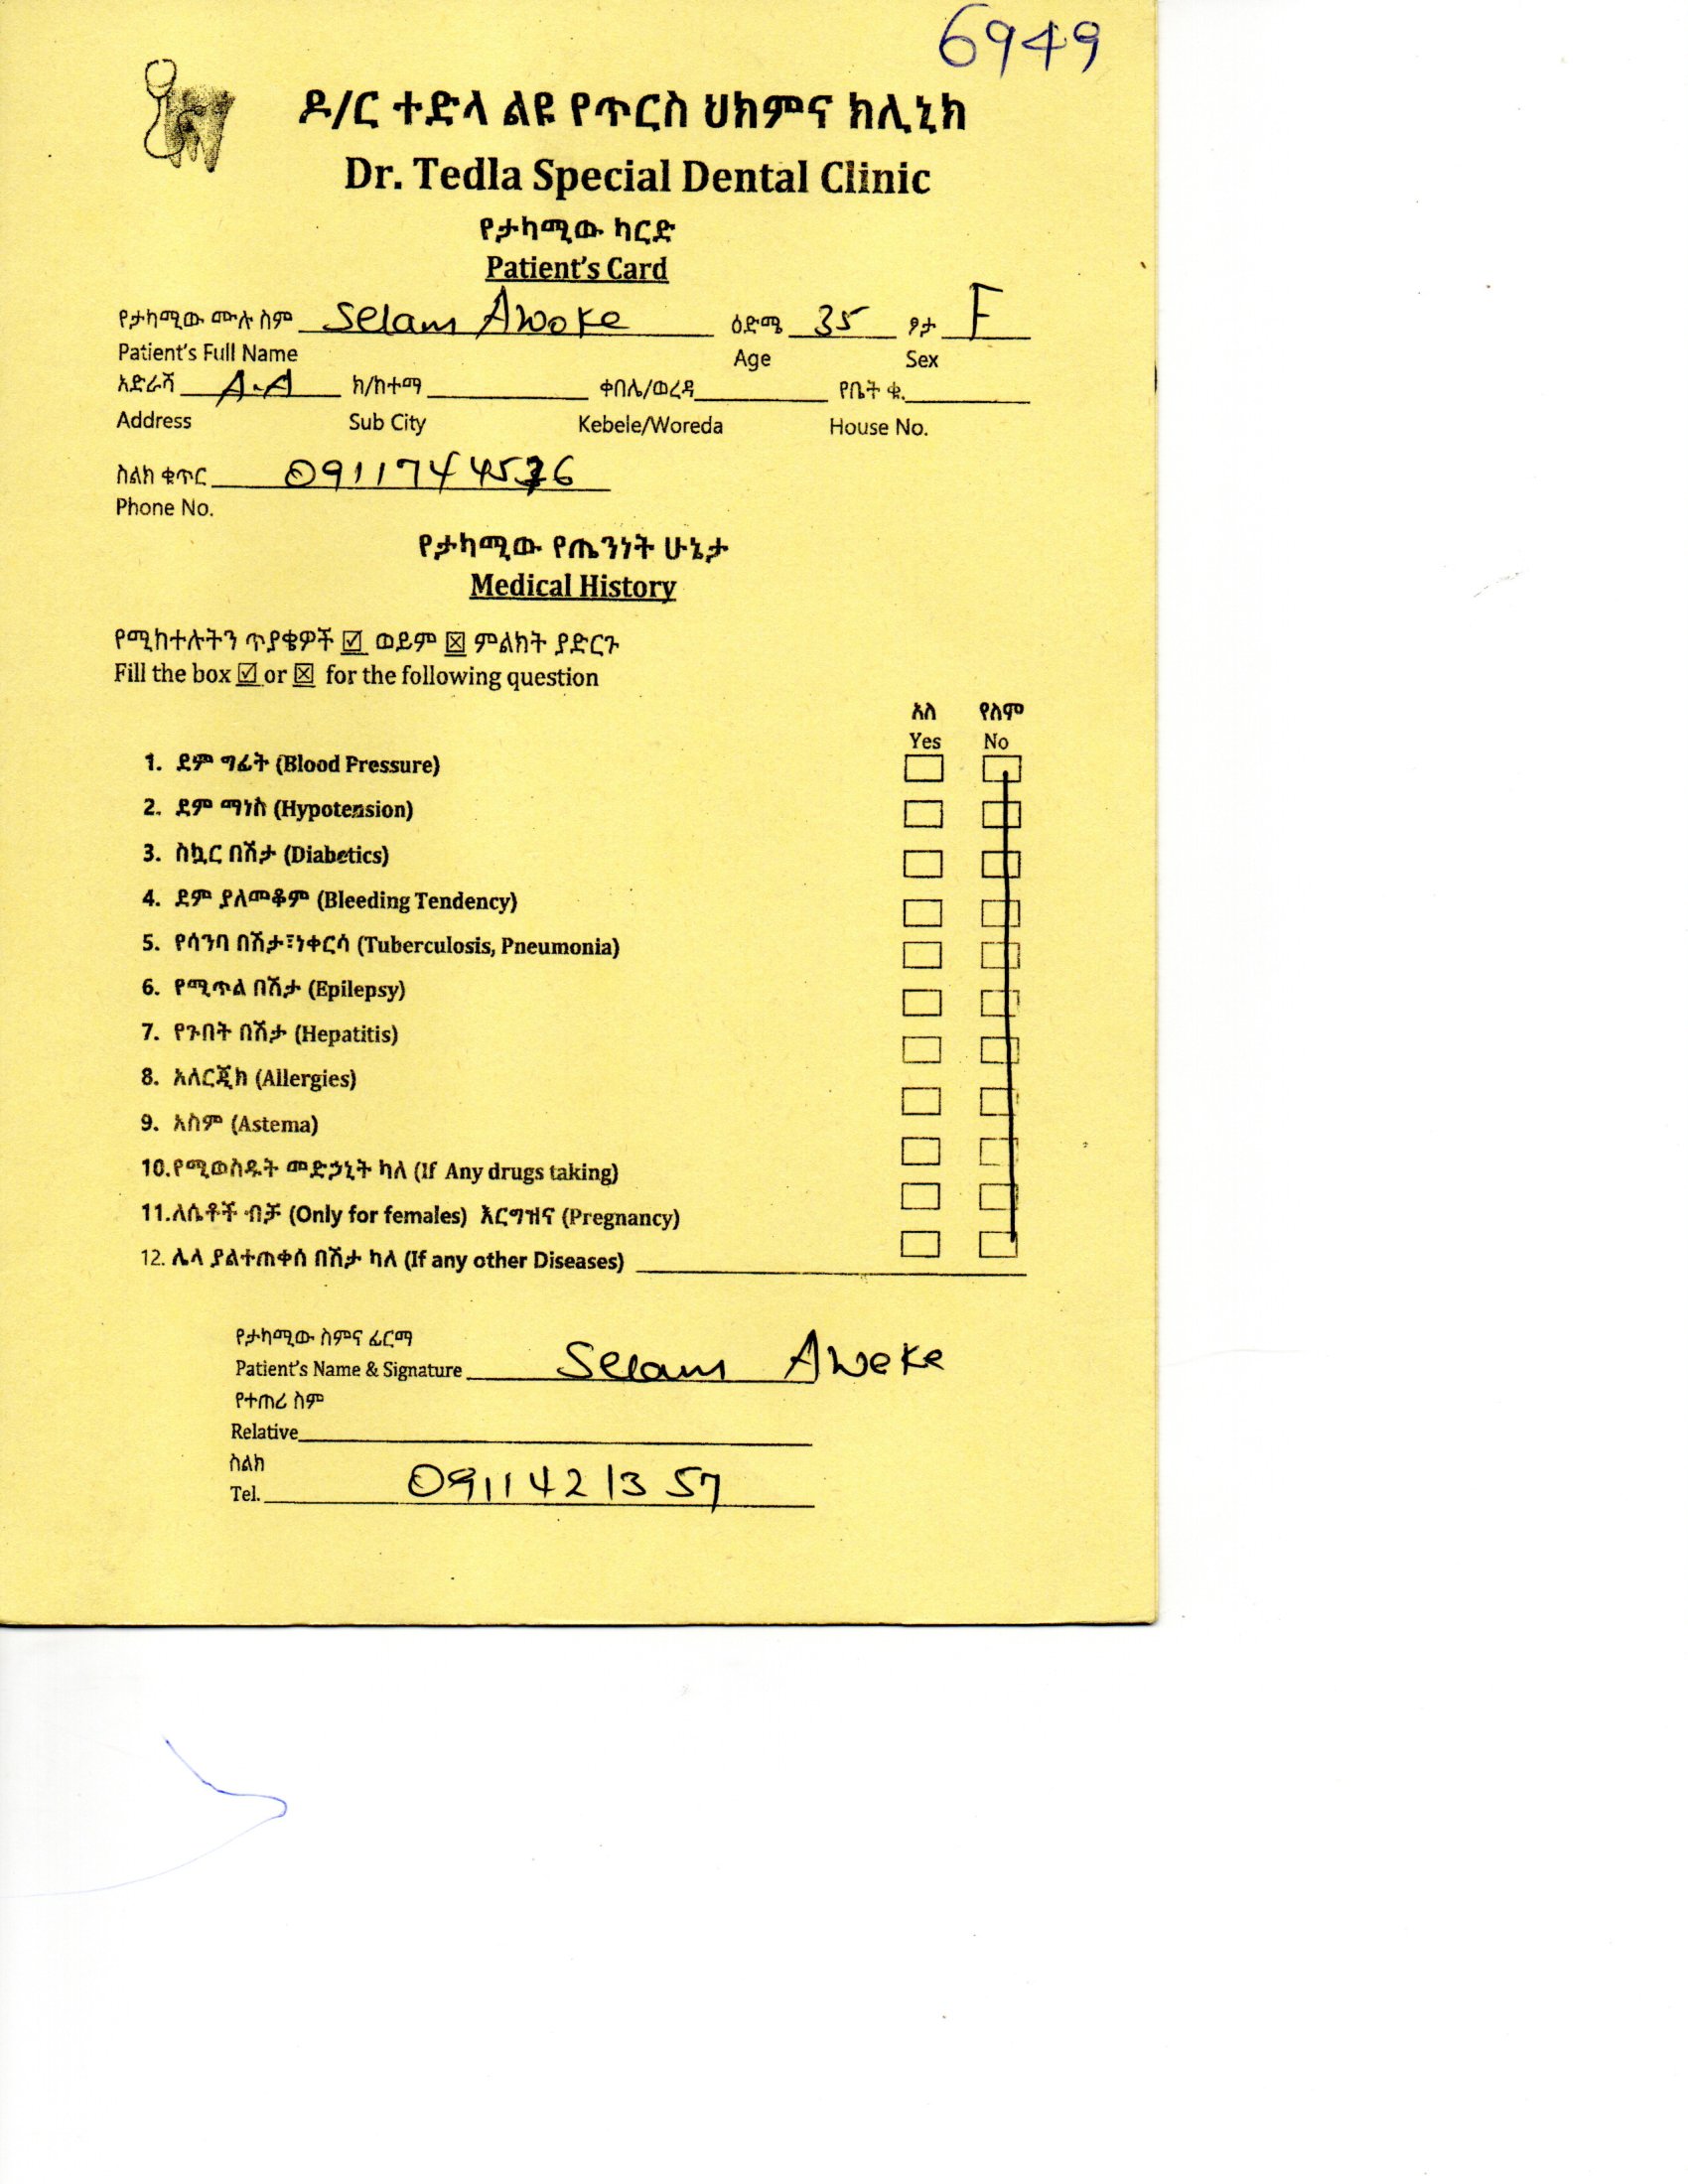 6949
ዶ/ር ተድላ ልዩ የጥርስ ህክምና ክሊኒክ
Dr. Tedla Special Dental Clinic
የታካሚው ካርድ
Patient's Card
የታካሚው ሙሉ ስም Selam Awoke ዕድሜ 35 ፆታ F
Patient's Full Name Age Sex
አድራሻ A.A ክ/ከተማ ቀበሌ/ወረዳ የቤት ቁ.
Address Sub City Kebele/Woreda House No.
ስልክ ቁጥር
Phone No.
የታካሚው የጤንነት ሁኔታ
Medical History
የሚከተሉትን ጥያቄዎች ☑ ወይም ☒ ምልክት ያድርጉ
Fill the box ☑ or ☒ for the following question
አለ የለም
Yes No
1. ደም ግፊት (Blood Pressure)
2. ደም ማነስ (Hypotension)
3. ስኳር በሽታ (Diabetics)
4. ደም ያለመቆም (Bleeding Tendency)
5. የሳንባ በሽታ፣ነቀርሳ (Tuberculosis, Pneumonia)
6. የሚጥል በሽታ (Epilepsy)
7. የጉበት በሽታ (Hepatitis)
8. አለርጂክ (Allergies)
9. አስም (Astema)
10.የሚወስዱት መድኃኒት ካለ (If Any drugs taking)
11.ለሴቶች ብቻ (Only for females) እርግዝና (Pregnancy)
12. ሌላ ያልተጠቀሰ በሽታ ካለ (If any other Diseases)
የታካሚው ስምና ፊርማ
Patient's Name & Signature Selam Aweke
የተጠሪ ስም
Relative
ስልክ
Tel. 0911421357